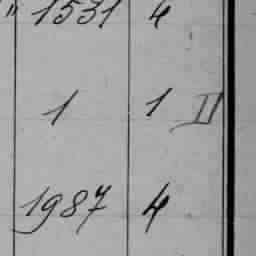 " 1531 4
1 1 II
1987 4